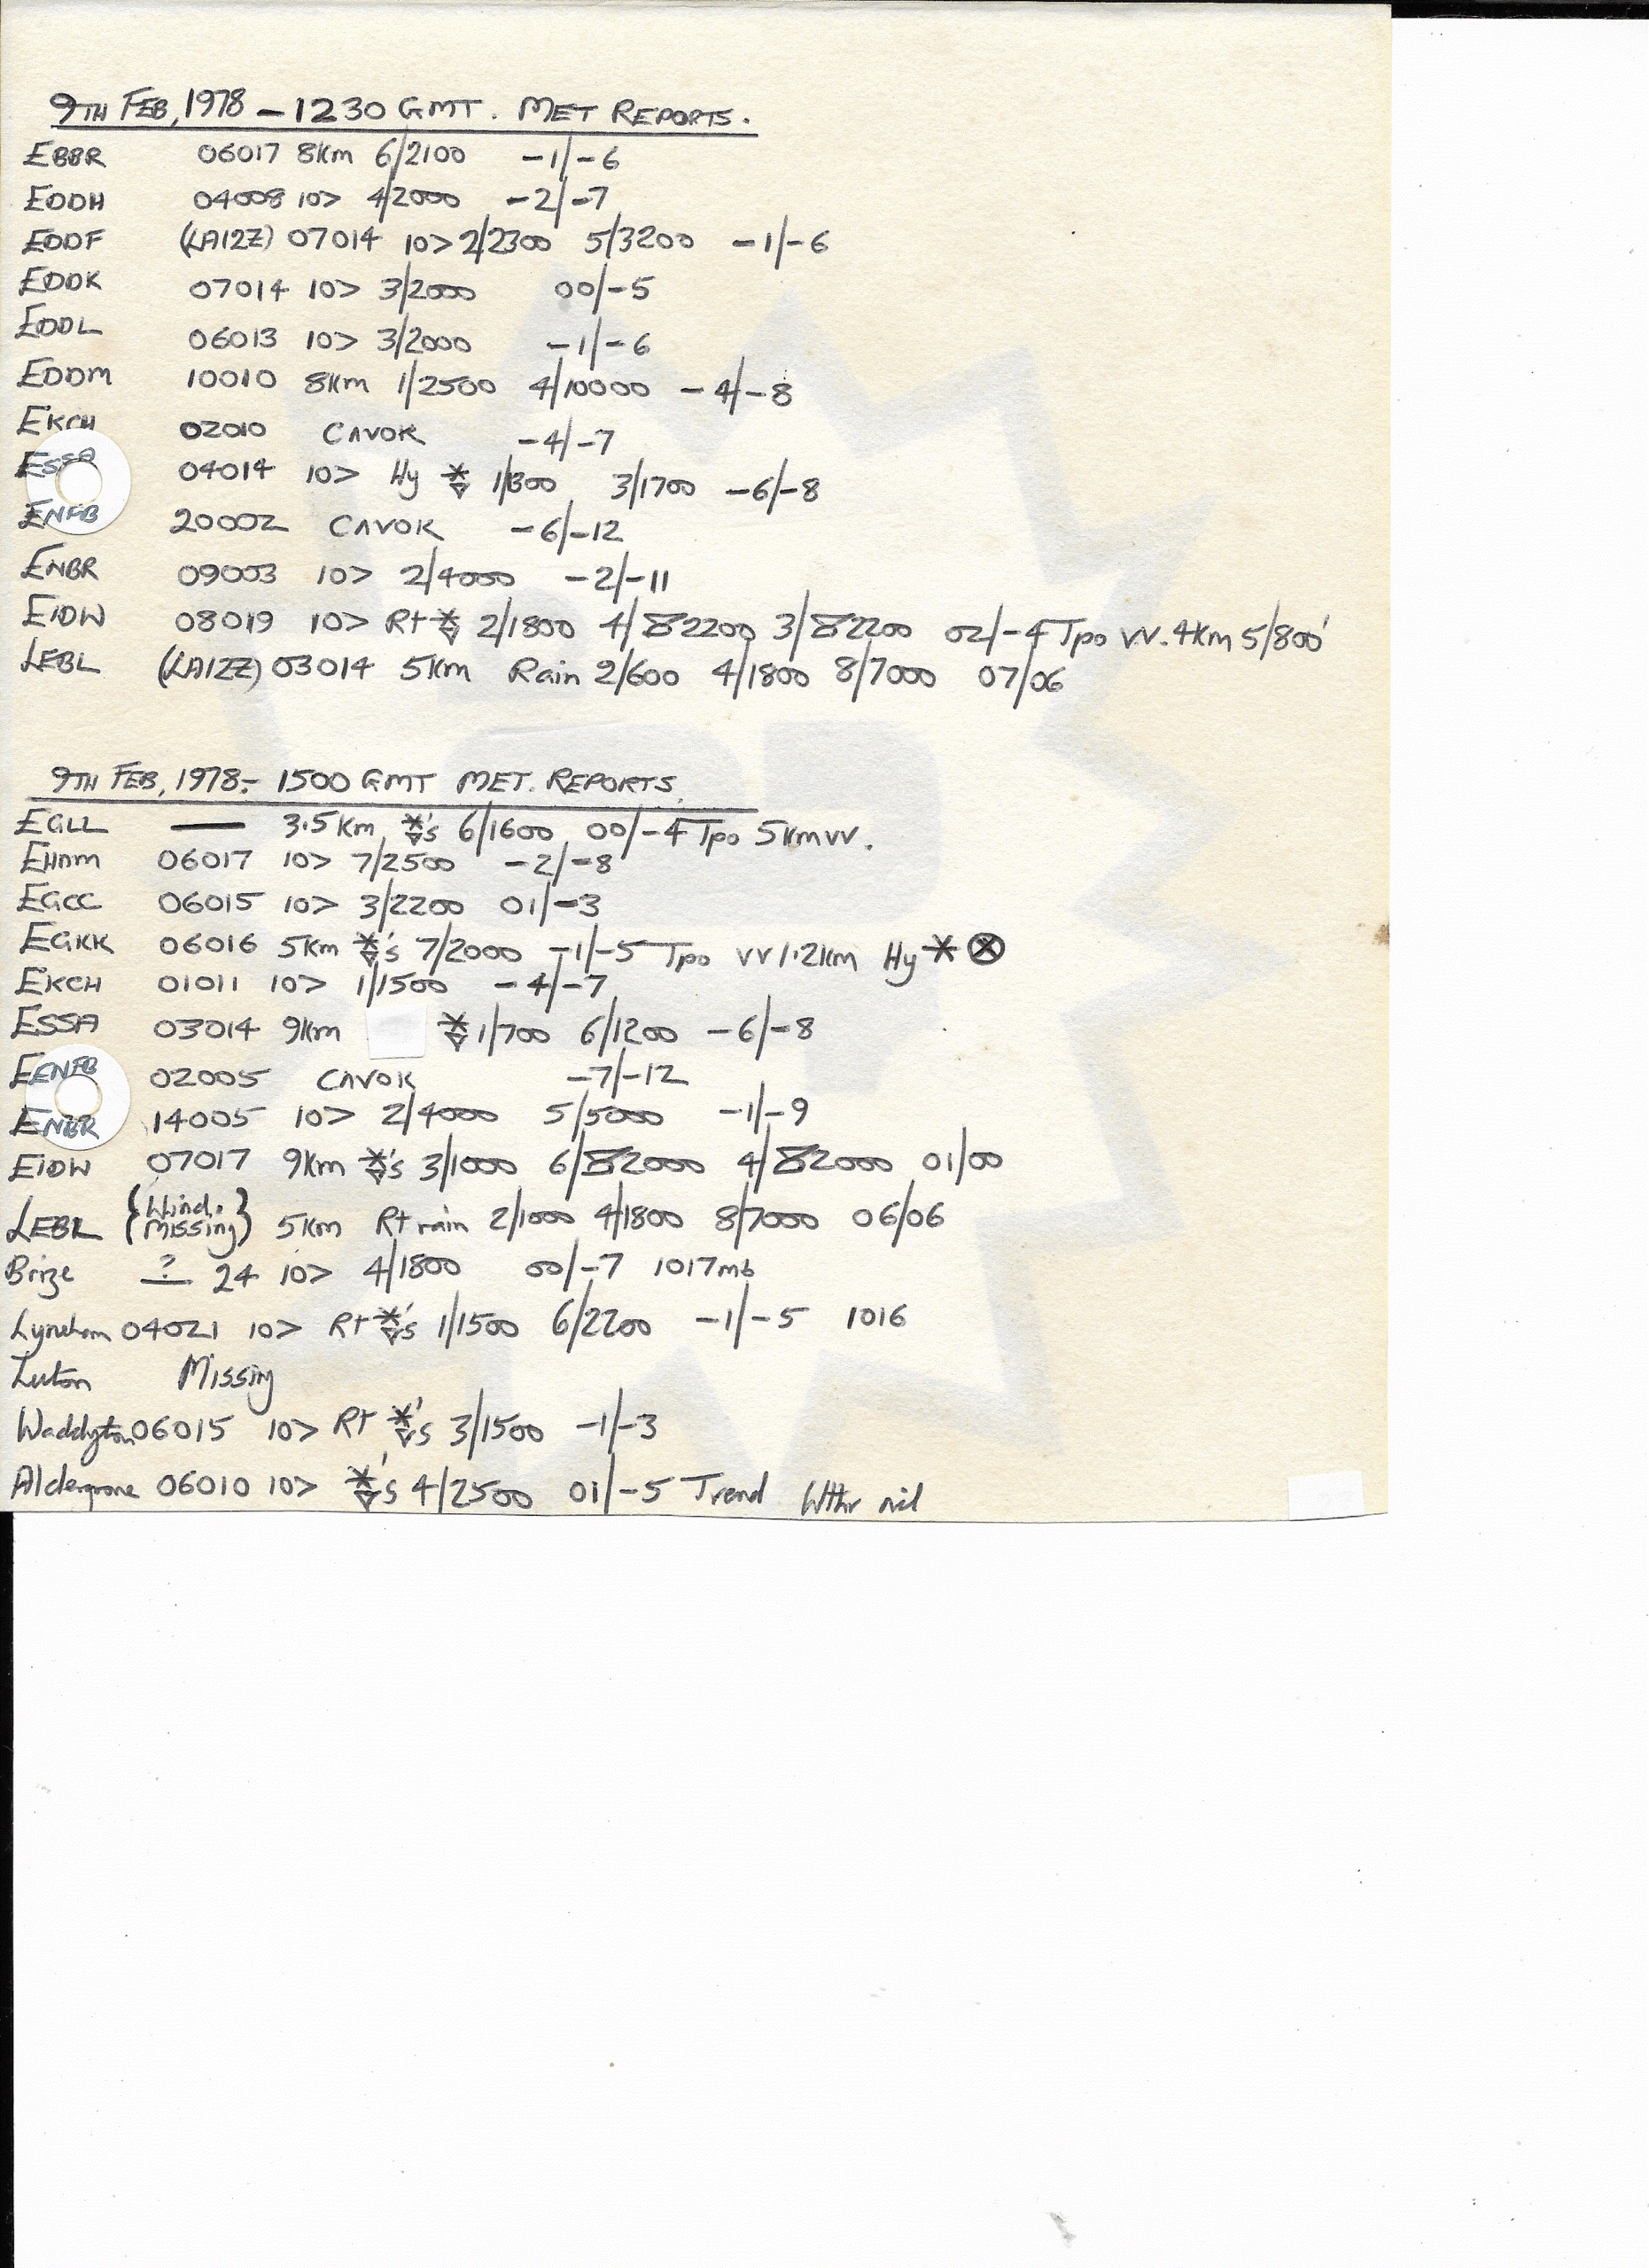 9TH FEB, 1978 - 1230 GMT. MET REPORTS.
EBBR 06017 8Km 6/2100 -1/-6
EDDH 04008 10> 4/2000 -2/-7
EDDF (LA12Z) 07014 10> 2/2300 5/3200 -1/-6
EDDK 07014 10> 3/2000 00/-5
EDDL 06013 10> 3/2000 -1/-6
EDDM 10010 8Km 1/2500 4/10000 -4/-8
EKCH 02010 CAVOK -4/-7
ESSA 04014 10> Hy * 1/800 3/1700 -6/-8
ENFB 20002 CAVOK -6/-12
ENBR 09003 10> 2/4000 -2/-11
EIDW 08019 10> Rt * 2/1800 4/2200 3/2200 02/-4 Tpo VV. 4Km 5/800'
LEBL (LA12Z) 03014 5Km Rain 2/600 4/1800 8/7000 07/06
9TH FEB, 1978:- 1500 GMT MET. REPORTS.
EGLL — 3.5 Km *'s 6/1600 00/-4 Tpo 5Km VV.
EHAM 06017 10> 7/2500 -2/-8
EGCC 06015 10> 3/2200 01/-3
EGKK 06016 5Km *'s 7/2000 -1/-5 Tpo VV 1.2Km Hy * ⊗
EKCH 01011 10> 1/1500 -4/-7
ESSA 03014 9Km * 1/700 6/1200 -6/-8
EENFB 02005 CAVOK -7/-12
ENBR 14005 10> 2/4000 5/5000 -1/-9
EIDW 07017 9Km *'s 3/1000 6/2000 4/2000 01/00
LEBL {Wind. Missing} 5Km Rt rain 2/1000 4/1800 8/7000 06/06
Brize ? 24 10> 4/1800 00/-7 1017mb
Lyneham 04021 10> Rt *'s 1/1500 6/2200 -1/-5 1016
Luton Missing
Waddington 06015 10> Rt *'s 3/1500 -1/-3
Aldergrove 06010 10> *'s 4/2500 01/-5 Trend Wthr nil